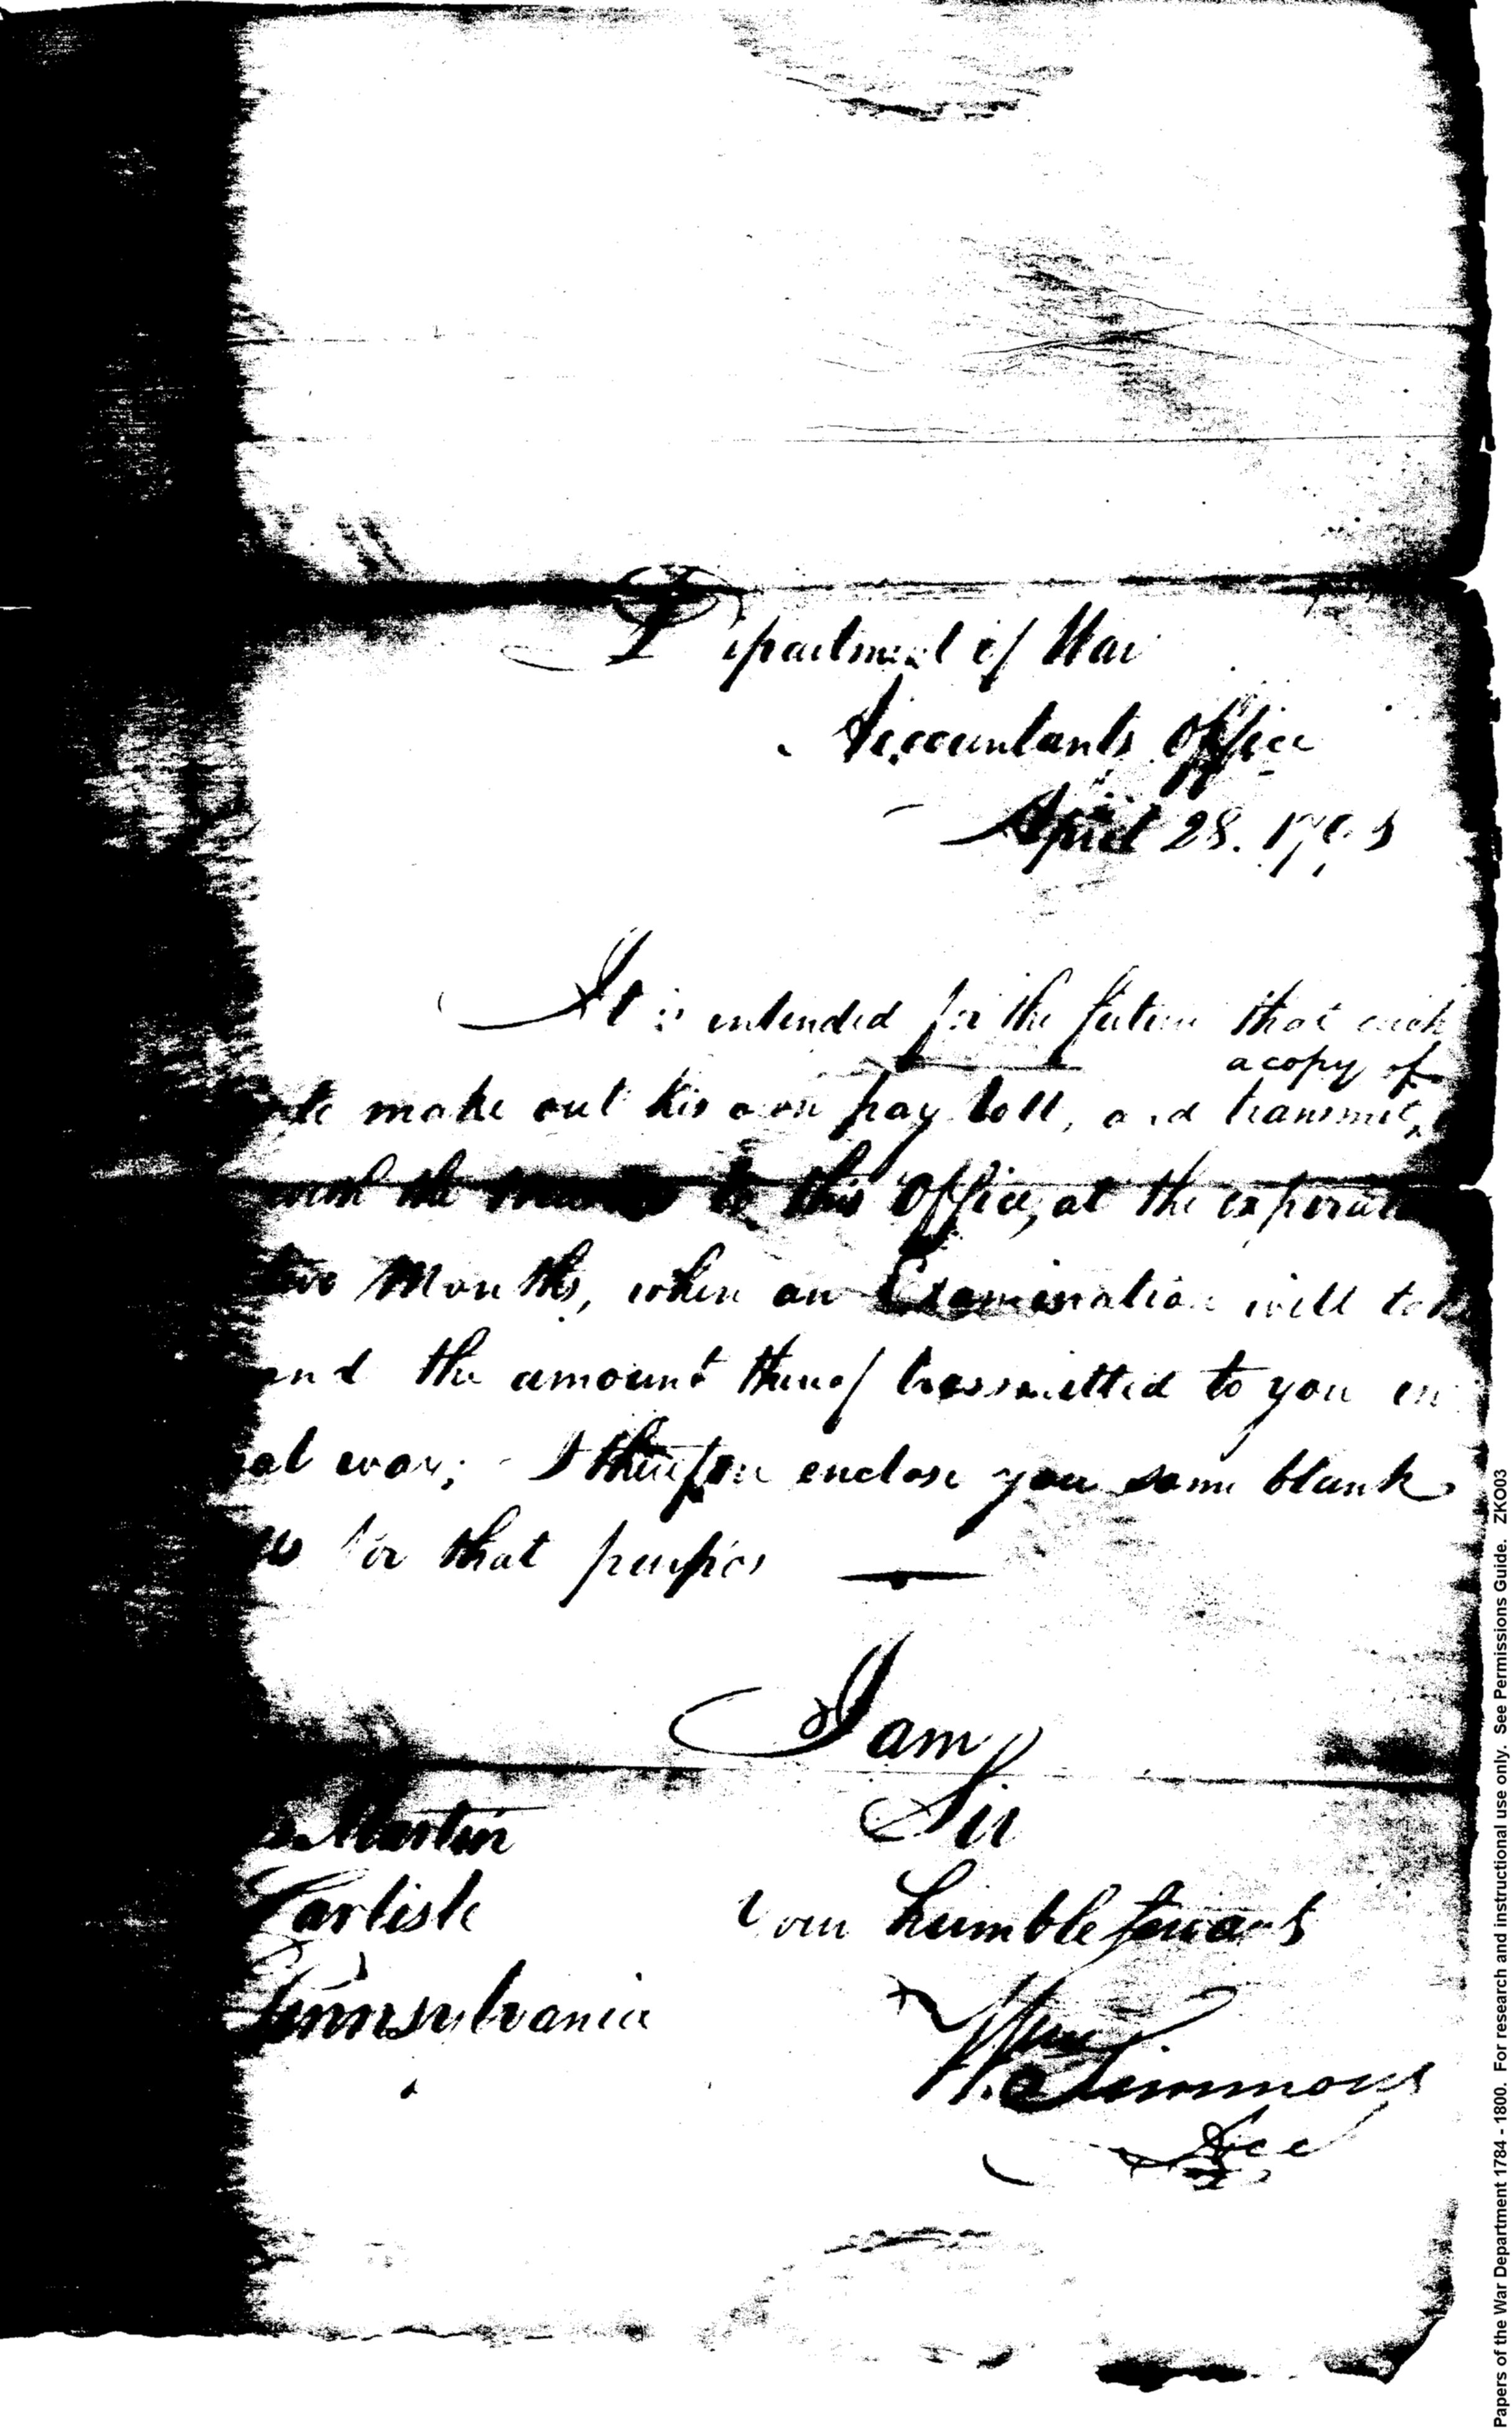 Department of War
Accountants Office
April 28. 179
It is intended for the future that each
a copy of
make out his own pay roll, and transmit,
the to this Office, at the expirat
Months, when an Examination will tak
and the amount thereof transmitted to you in
al way; I therefore enclose you some blank
for that purpos
I am
Sir
Martin
Carlisle
Your humble Servant
Pennsylvania
Wm Simmons
Acct
Papers of the War Department 1784 - 1800. For research and instructional use only. See Permissions Guide. ZKO03